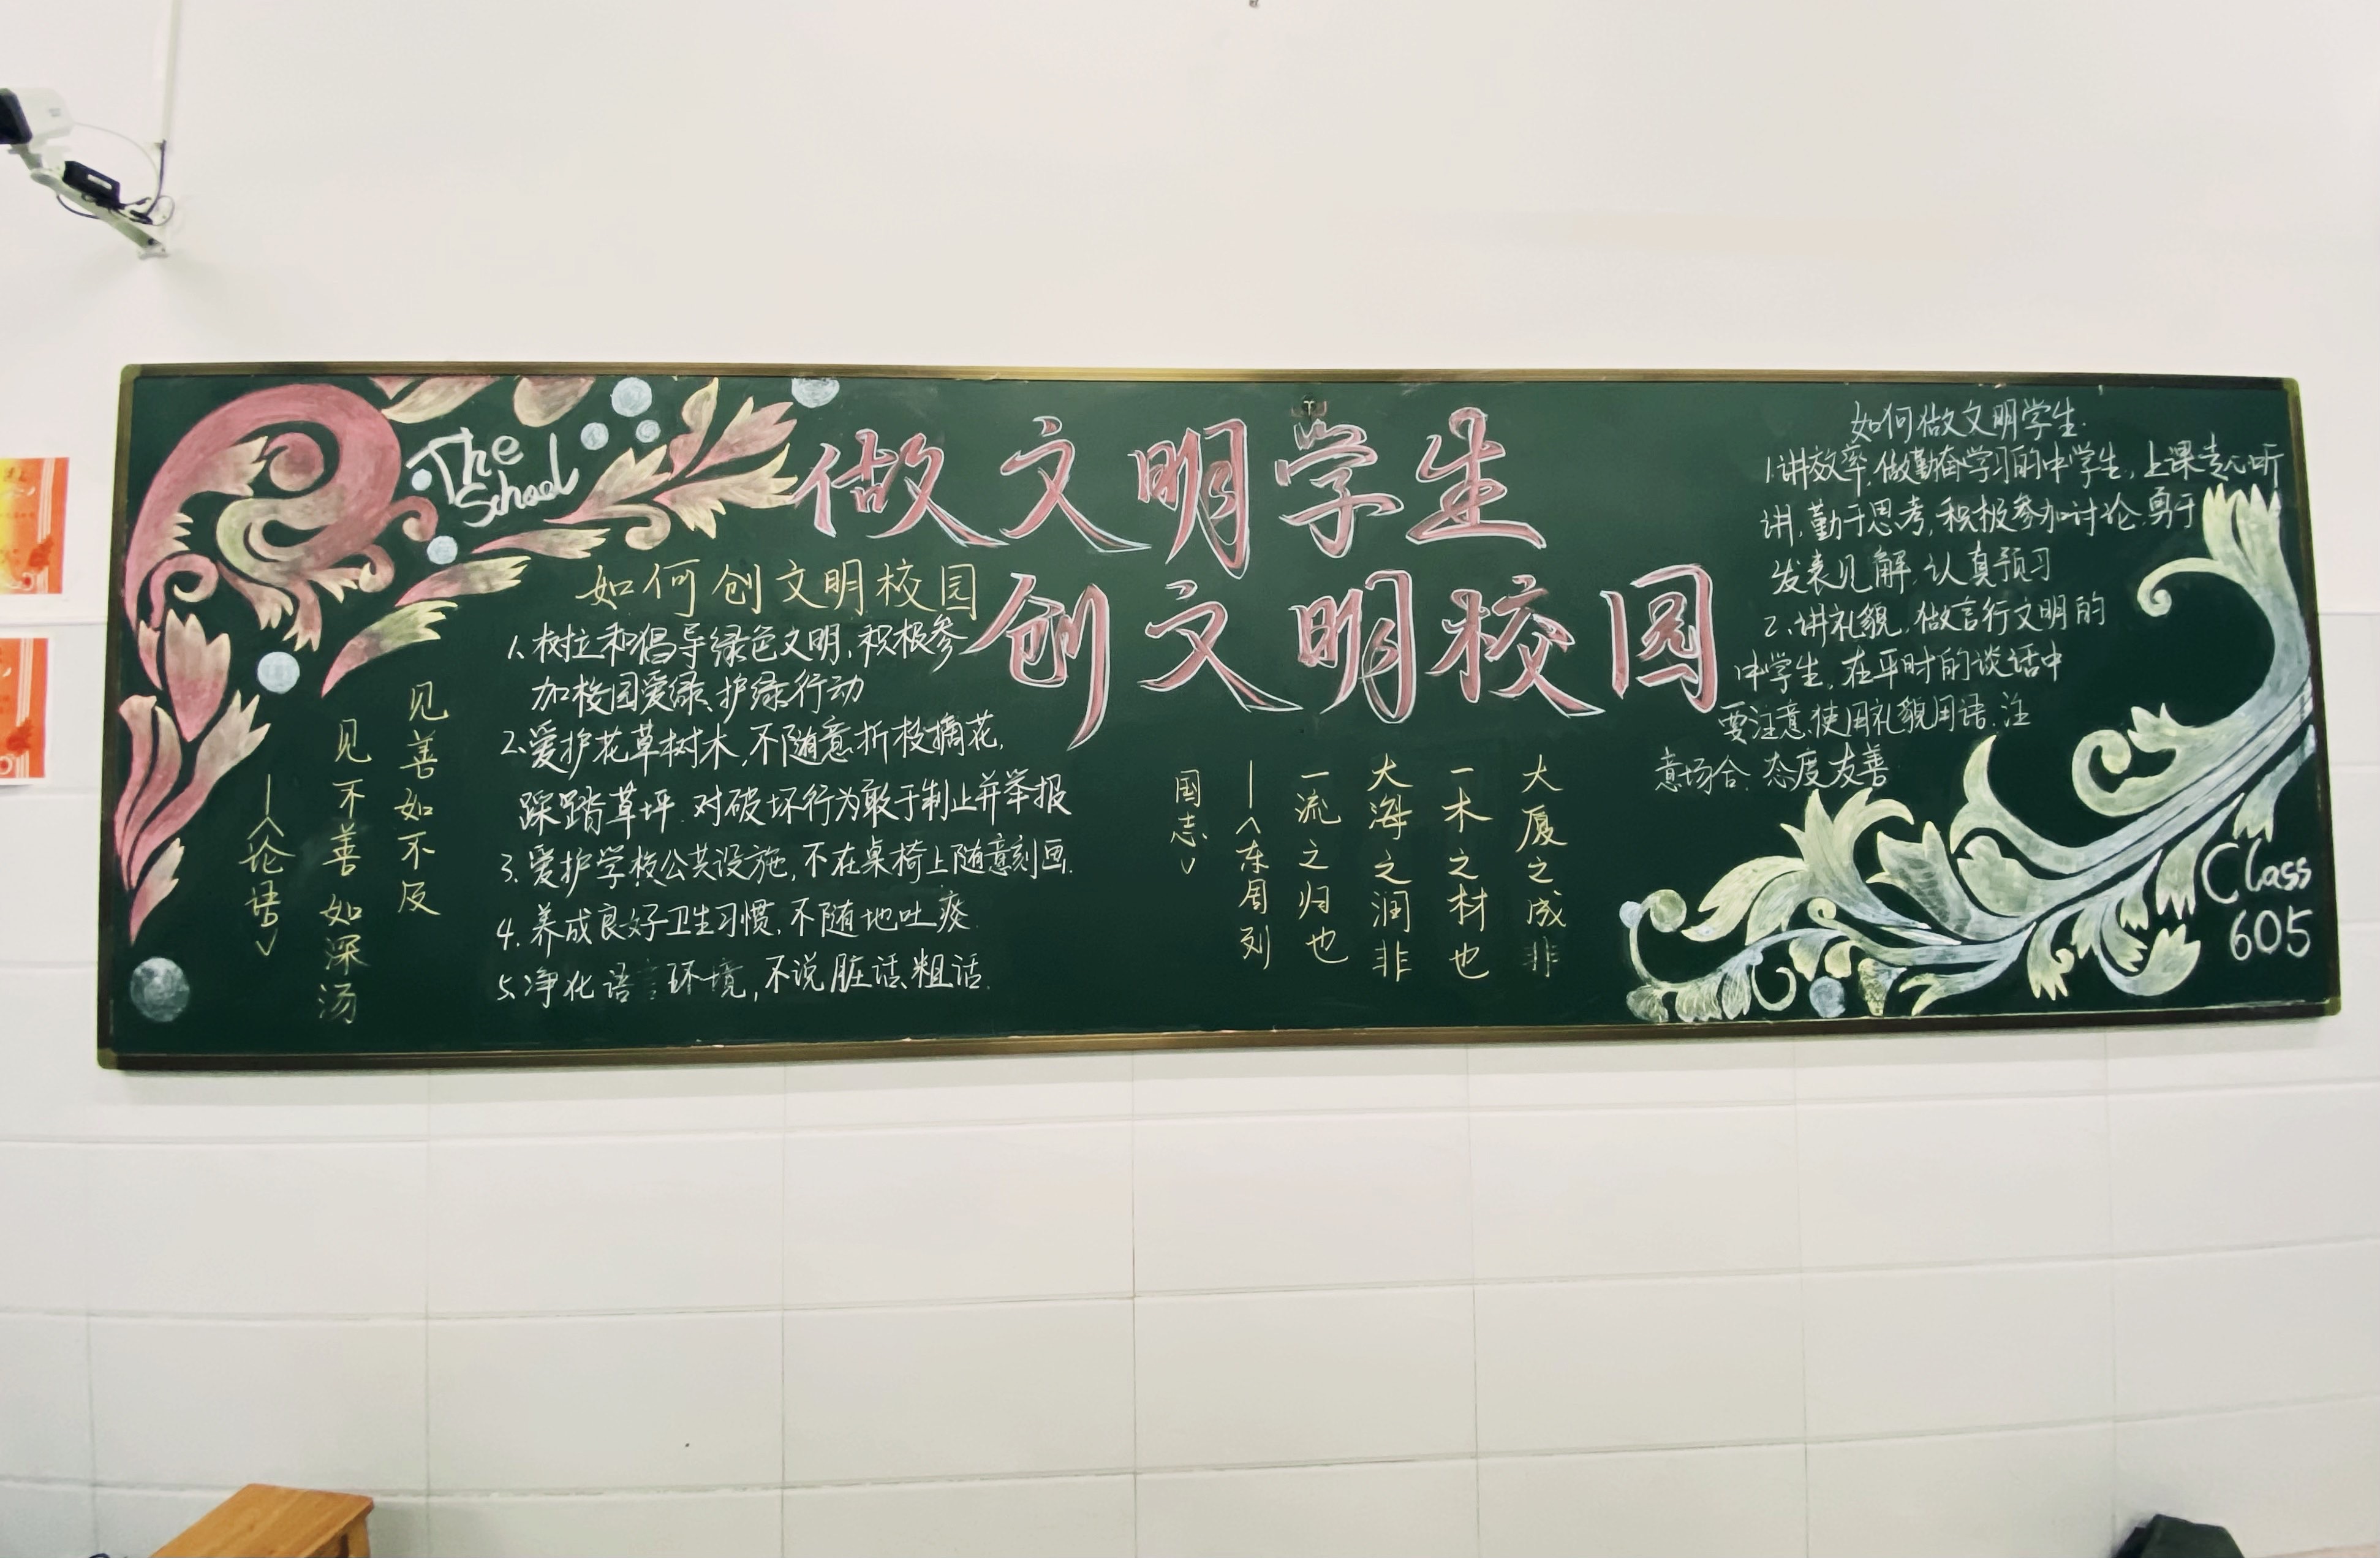 The
School
做文明学生
创文明校园
如何创文明校园
1.树立和倡导绿色文明,积极参
加校园爱绿、护绿行动
2.爱护花草树木,不随意折枝摘花,
踩踏草坪.对破坏行为敢于制止并举报
3.爱护学校公共设施,不在桌椅上随意刻画.
4.养成良好卫生习惯,不随地吐痰.
5.净化语言环境,不说脏话、粗话.
见善如不及
见不善如深汤
—《论语》
大厦之成非
一木之材也
大海之润非
一流之归也
—《东周列
国志》
如何做文明学生.
1.讲效率,做勤奋学习的中学生,上课专心听
讲,勤于思考,积极参加讨论.勇于
发表见解,认真预习
2、讲礼貌,做言行文明的
中学生,在平时的谈话中
要注意使用礼貌用语,注
意场合.态度友善
Class
605